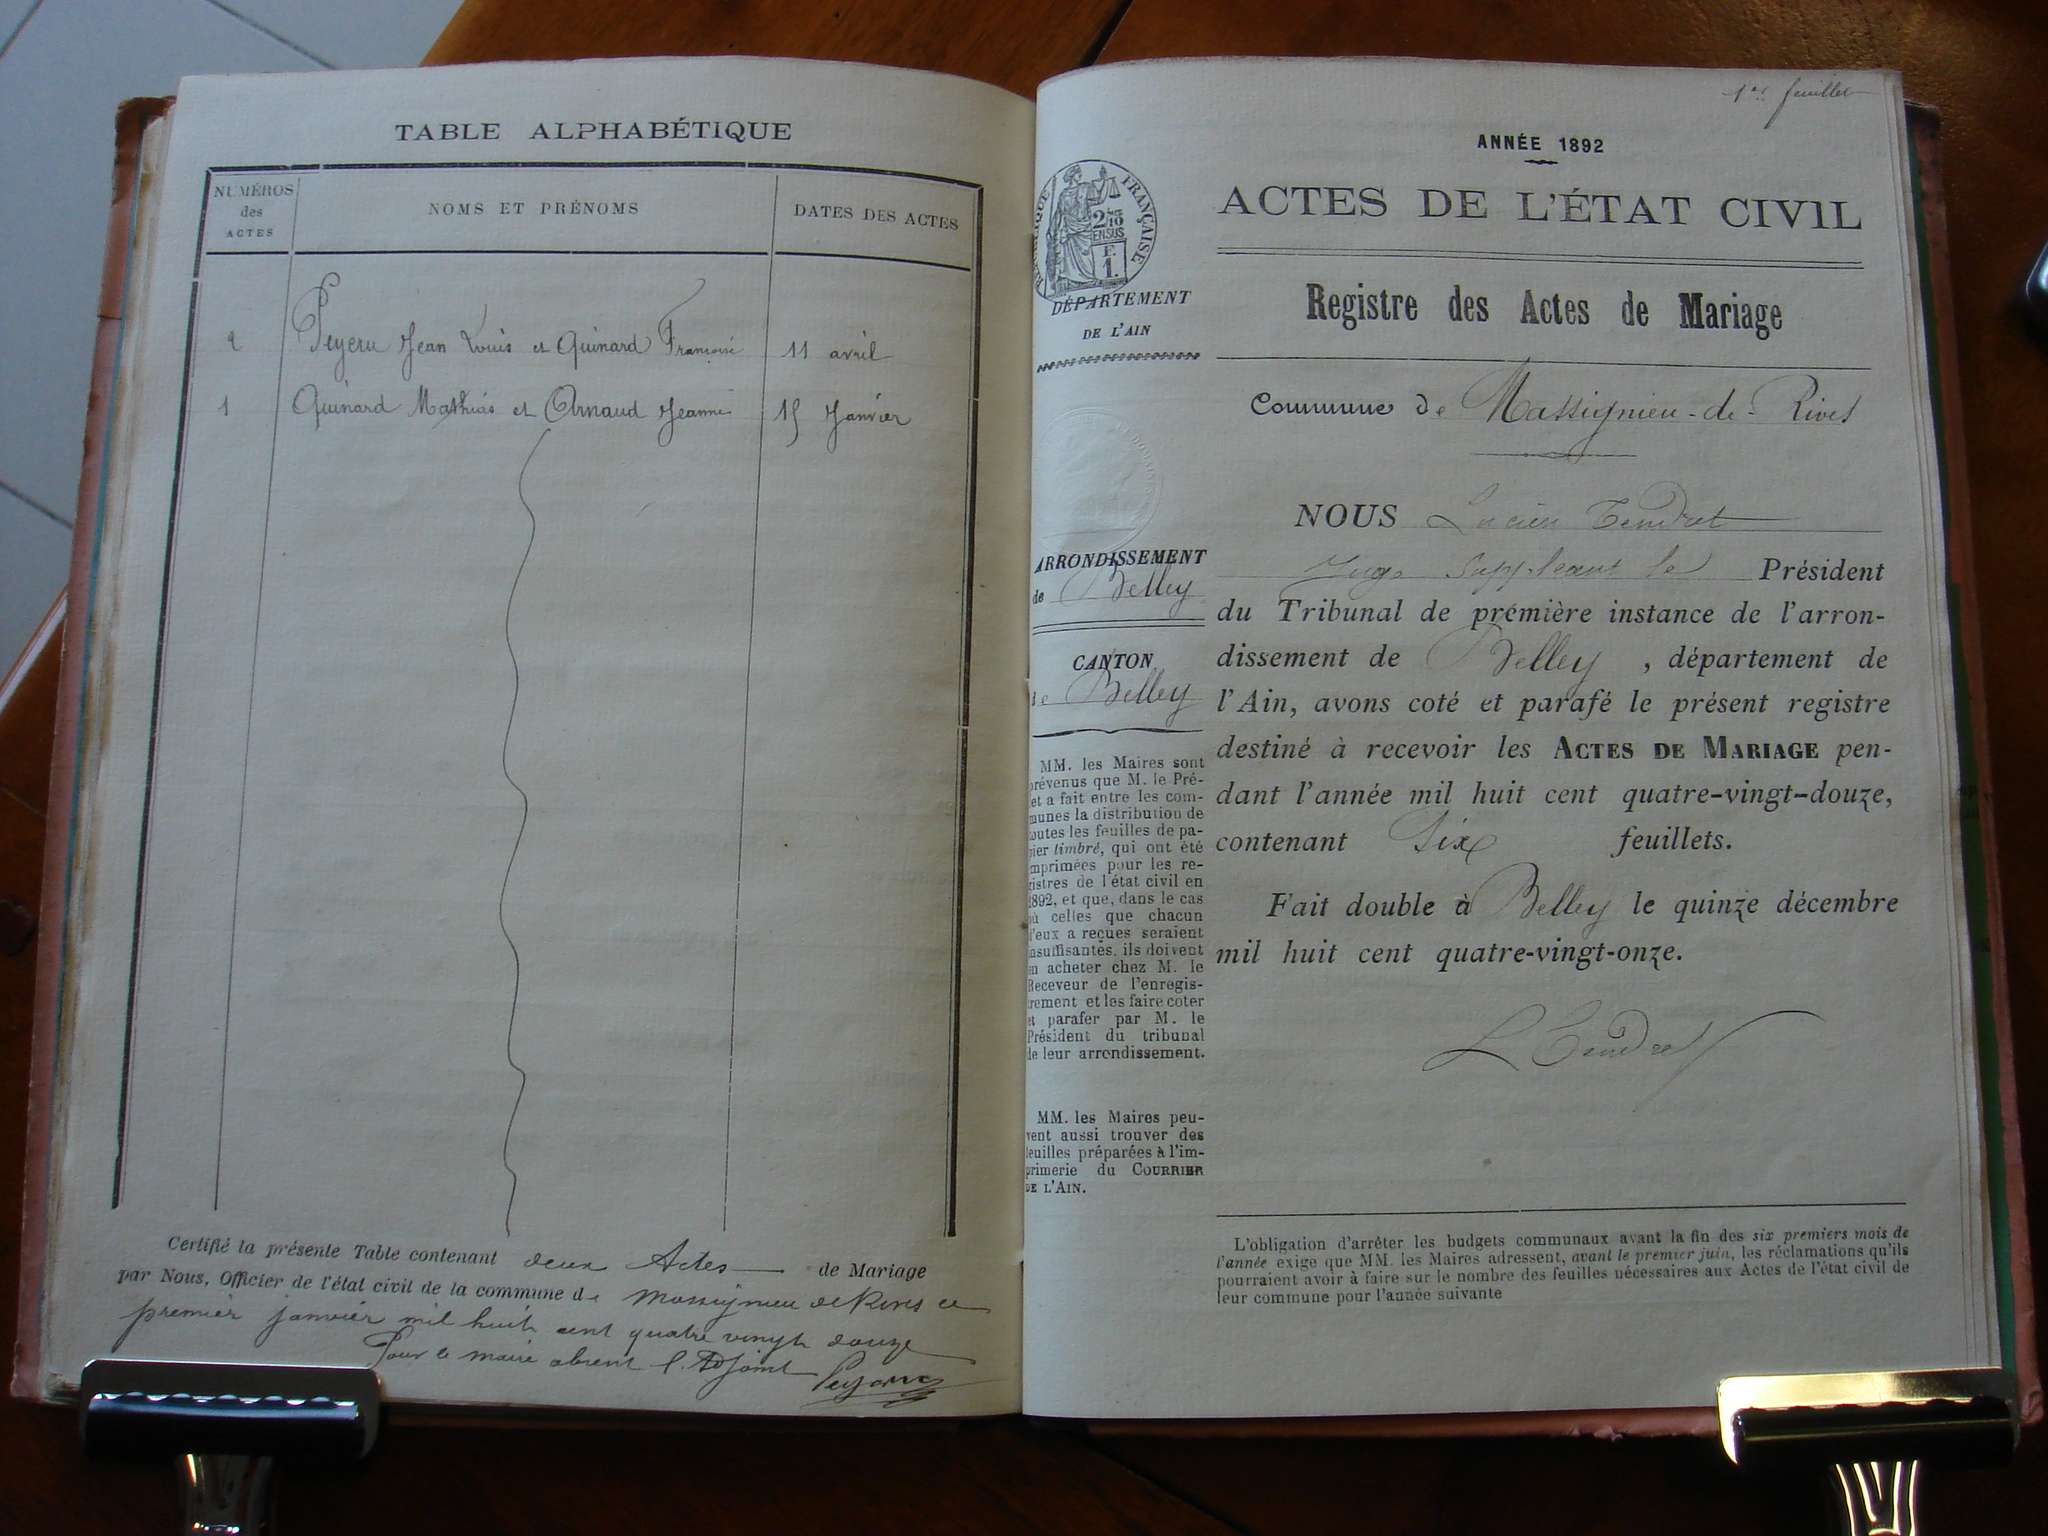 TABLE ALPHABÉTIQUE
NUMÉROS des ACTES
NOMS ET PRÉNOMS
DATES DES ACTES
2 Jean Louis et Quinard 11 avril
1 Quinard Mathias et Arnaud Jeanne 15 Janvier
Certifié la présente Table contenant deux Actes de Mariage
par Nous, Officier de l'état civil de la commune de Massignieu de Rives ce
premier janvier mil huit cent quatre vingt douze
Pour le maire absent l'Adjoint
1er feuillet
ANNÉE 1892
ACTES DE L'ÉTAT CIVIL
Registre des Actes de Mariage
Commune de Massignieu-de-Rives
RÉPUBLIQUE FRANÇAISE
2/10 EN SUS
F. 1.
DÉPARTEMENT
DE L'AIN
ARRONDISSEMENT
de Belley
CANTON
de Belley
MM. les Maires sont
prévenus que M. le Pré-
fet a fait entre les com-
munes la distribution de
toutes les feuilles de pa-
pier timbré, qui ont été
imprimées pour les re-
gistres de l'état civil en
1892, et que, dans le cas
où celles que chacun
d'eux a reçues seraient
insuffisantes, ils doivent
en acheter chez M. le
Receveur de l'enregis-
trement et les faire coter
et parafer par M. le
Président du tribunal
de leur arrondissement.
MM. les Maires peu-
vent aussi trouver des
feuilles préparées à l'im-
primerie du COURRIER
DE L'AIN.
NOUS Lucien Tendret
Juge Suppléant le Président
du Tribunal de prémière instance de l'arron-
dissement de Belley, département de
l'Ain, avons coté et parafé le présent registre
destiné à recevoir les ACTES DE MARIAGE pen-
dant l'année mil huit cent quatre-vingt-douze,
contenant Six feuillets.
Fait double à Belley le quinze décembre
mil huit cent quatre-vingt-onze.
L Tendret
L'obligation d'arrêter les budgets communaux avant la fin des six premiers mois de
l'année exige que MM. les Maires adressent, avant le premier juin, les réclamations qu'ils
pourraient avoir à faire sur le nombre des feuilles nécessaires aux Actes de l'état civil de
leur commune pour l'année suivante